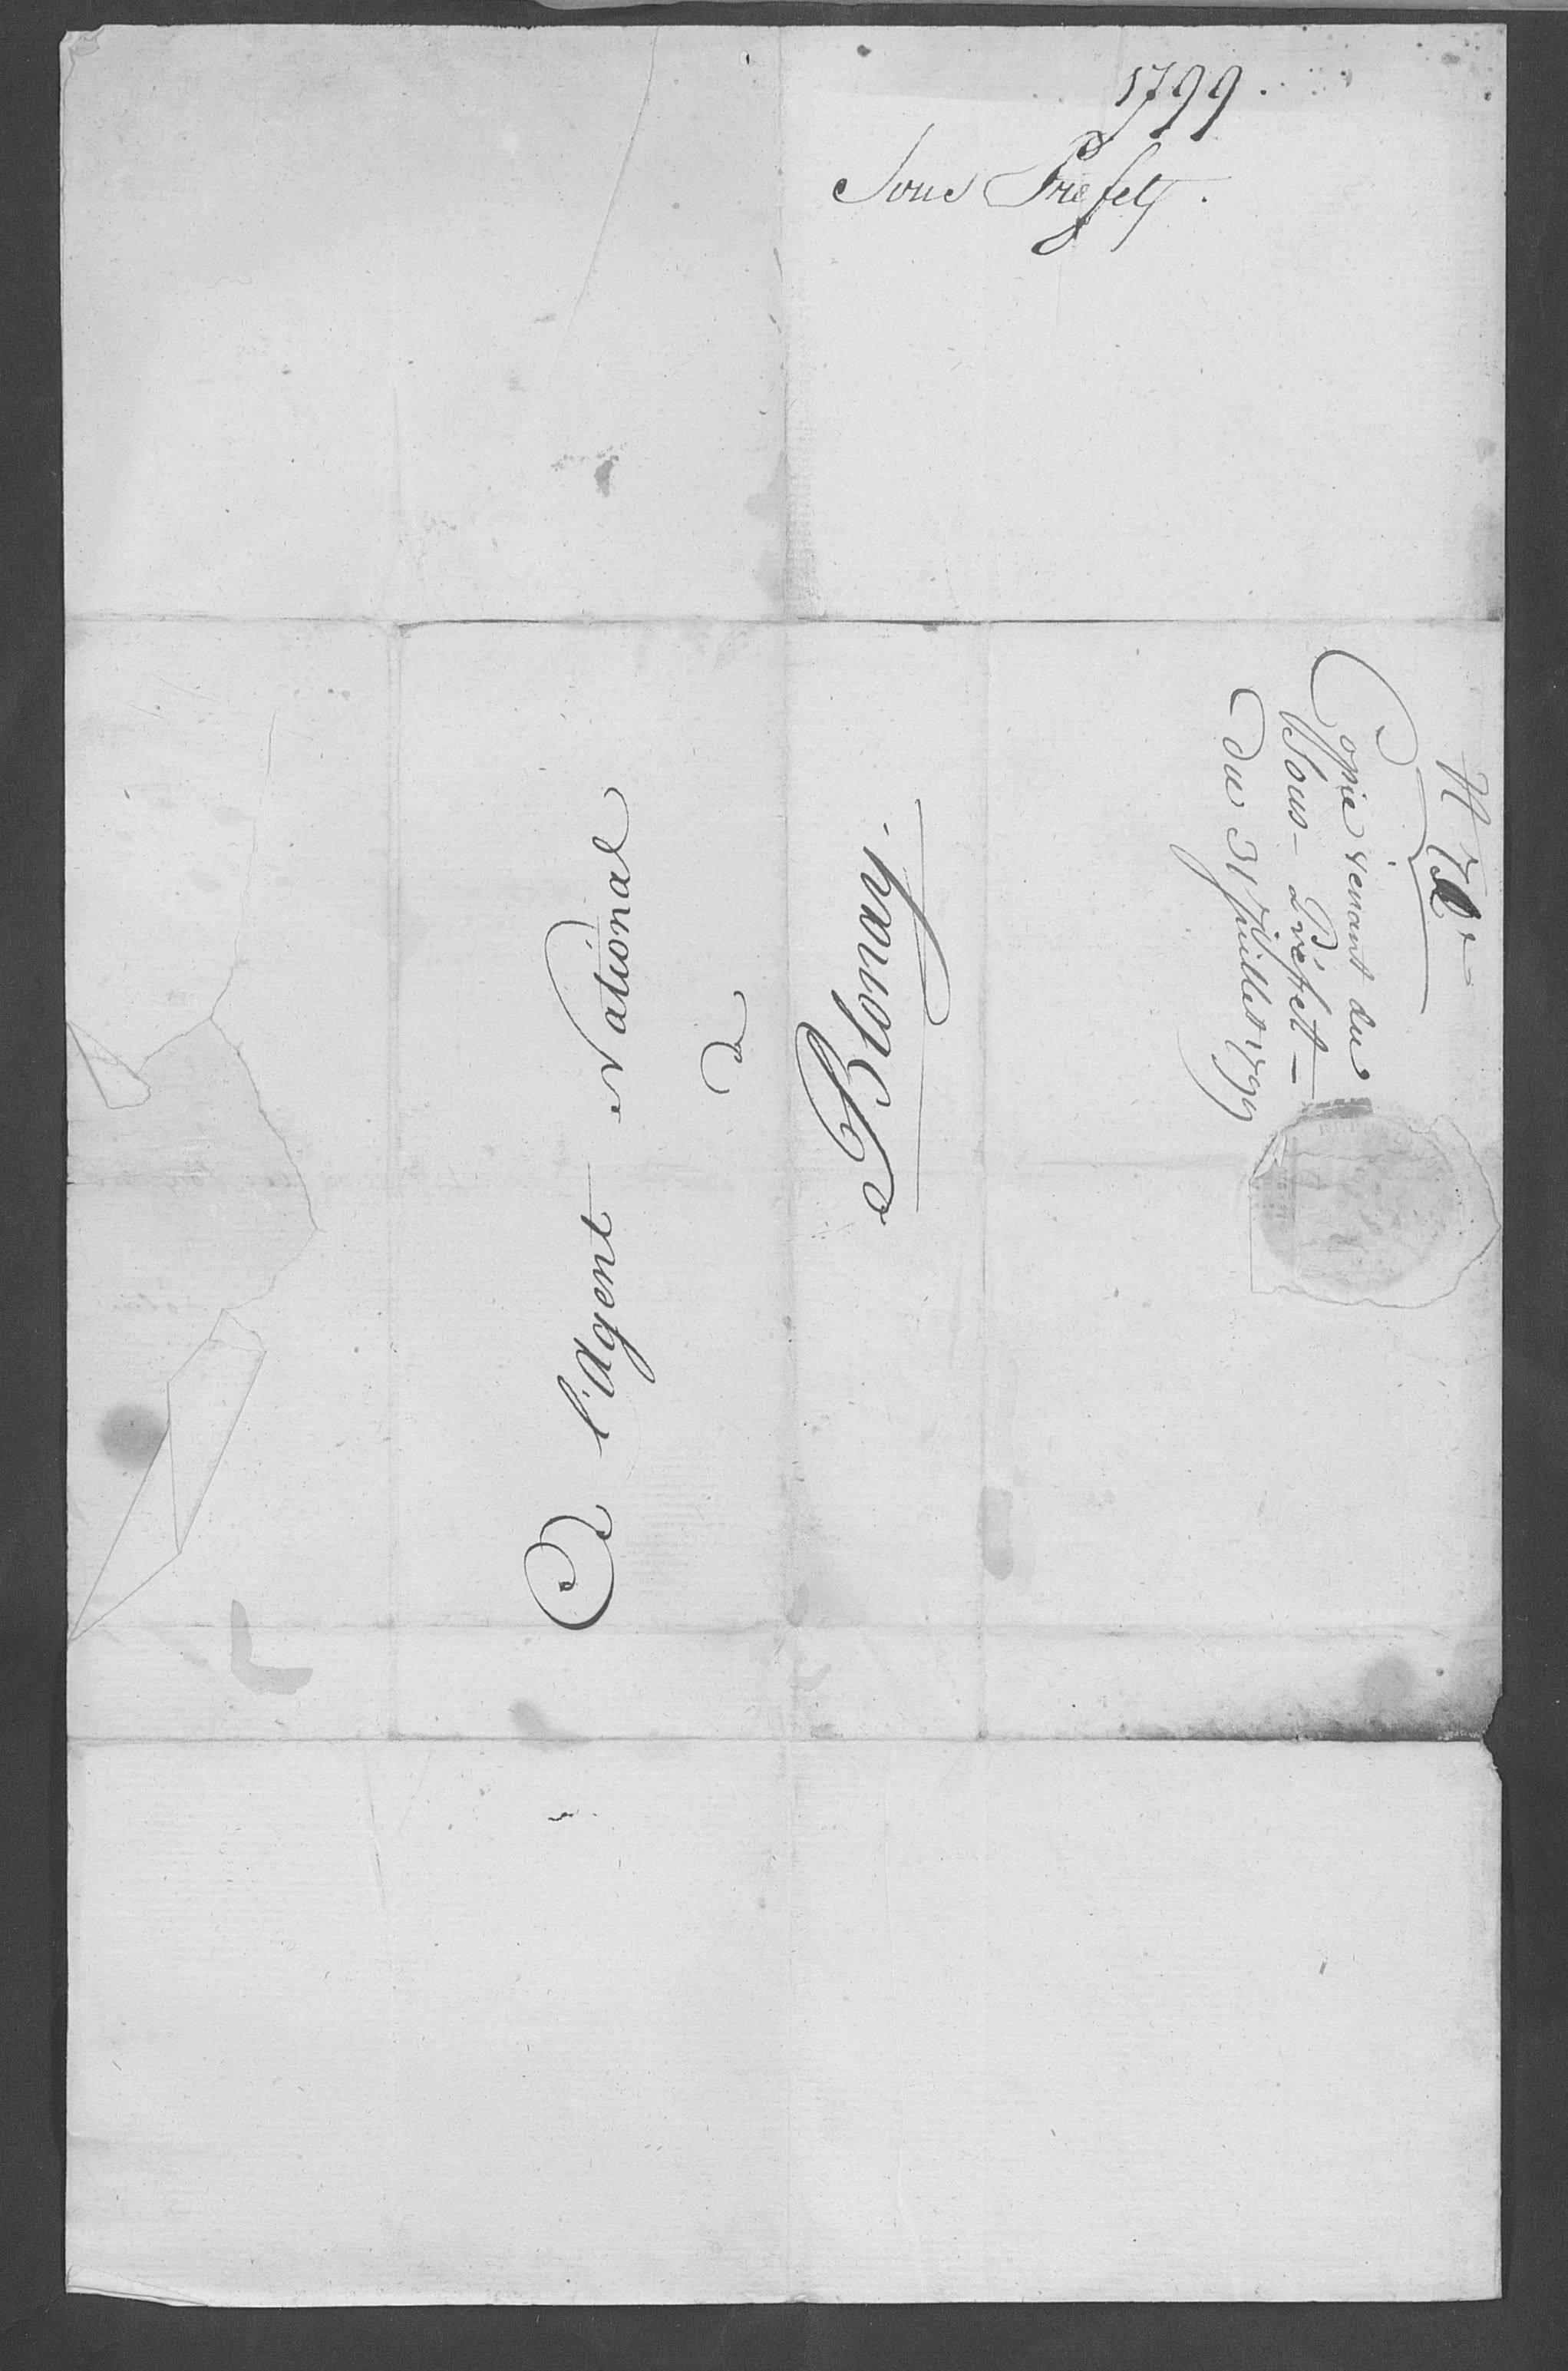 1799.
Sous Préfet.
Copie venant du
Sous-Préfet
du 31 Juillet 1799
A l'Agent National
de
Blonay.